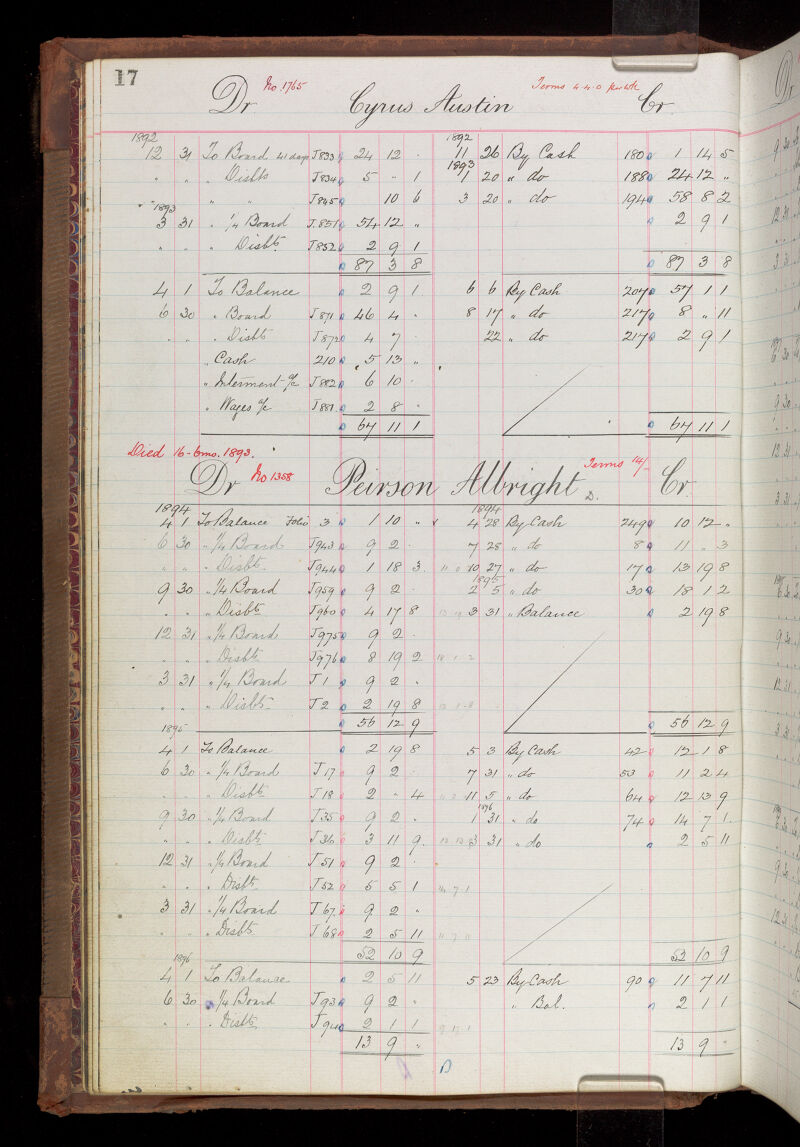 17
Dr No. 1765 Cyrus Austin Terms 4.4.0 per wk Cr
1892 1892
12 31 To Board 41 days J833 24 12 . 11 26 By Cash 180 1 14 5
1893
" " " Disbts J834 5 " 1 1 20 " do 188 24 12 "
" " " " J845 10 6 3 20 " do 194 58 8 2
1893
3 31 " 1/4 Board J.851 54 12 " 2 9 1
" " " Disbts J852 2 9 1
87 3 8 87 3 8
4 1 To Balance 2 9 1 6 6 By Cash 207 57 1 1
6 30 " Board J871 46 4 . 8 17 " do 217 8 " 11
" " " Disbts J872 4 7 . 22 " do 217 2 9 1
" Cash 210 5 13 "
" Interment a/c J882 6 10 .
" Wages a/c J881 2 8 .
67 11 1 67 11 1
Died 16-6mo. 1893.
Dr No 1358 Peirson Albright D. Terms 14/- Cr
1894 1894
4 1 To Balance Folio 3 1 10 " 4 28 By Cash 249 10 12 "
6 30 " 1/4 Board J943 9 2 . 7 28 " do 8 11 " 3
" " " Disbts J944 1 18 3 10 27 " do 17 13 19 8
1895
9 30 " 1/4 Board J959 9 2 . 2 5 " do 30 18 1 2
" " " Disbts J960 4 17 8 3 31 " Balance 2 19 8
12 31 " 1/4 Board J975 9 2 .
" " " Disbts J976 8 19 2
3 31 " 1/4 Board J1 9 2 "
" " " Disbts J2 2 19 8
56 12 9 56 12 9
1895
4 1 To Balance 2 19 8 5 3 By Cash 42 12 1 8
6 30 " 1/4 Board J17 9 2 . 7 31 " do 53 11 2 4
" " " Disbts J18 2 " 4 11 5 " do 64 12 13 9
1896
9 30 " 1/4 Board J35 9 2 . 1 31 " do 74 14 7 1
" " " Disbts J36 3 11 9 3 31 " do 2 5 11
12 31 " 1/4 Board J51 9 2 .
" " " Disbts J52 5 5 1
3 31 " 1/4 Board J67 9 2 "
" " " Disbts J68 2 5 11
52 10 9 52 10 9
1896
4 1 To Balance 2 5 11 5 23 By Cash 90 11 7 11
6 30 " 1/4 Board J93 9 2 " " Bal. 2 1 1
" " " Disbts J94 2 1 1
13 9 " 13 9 "